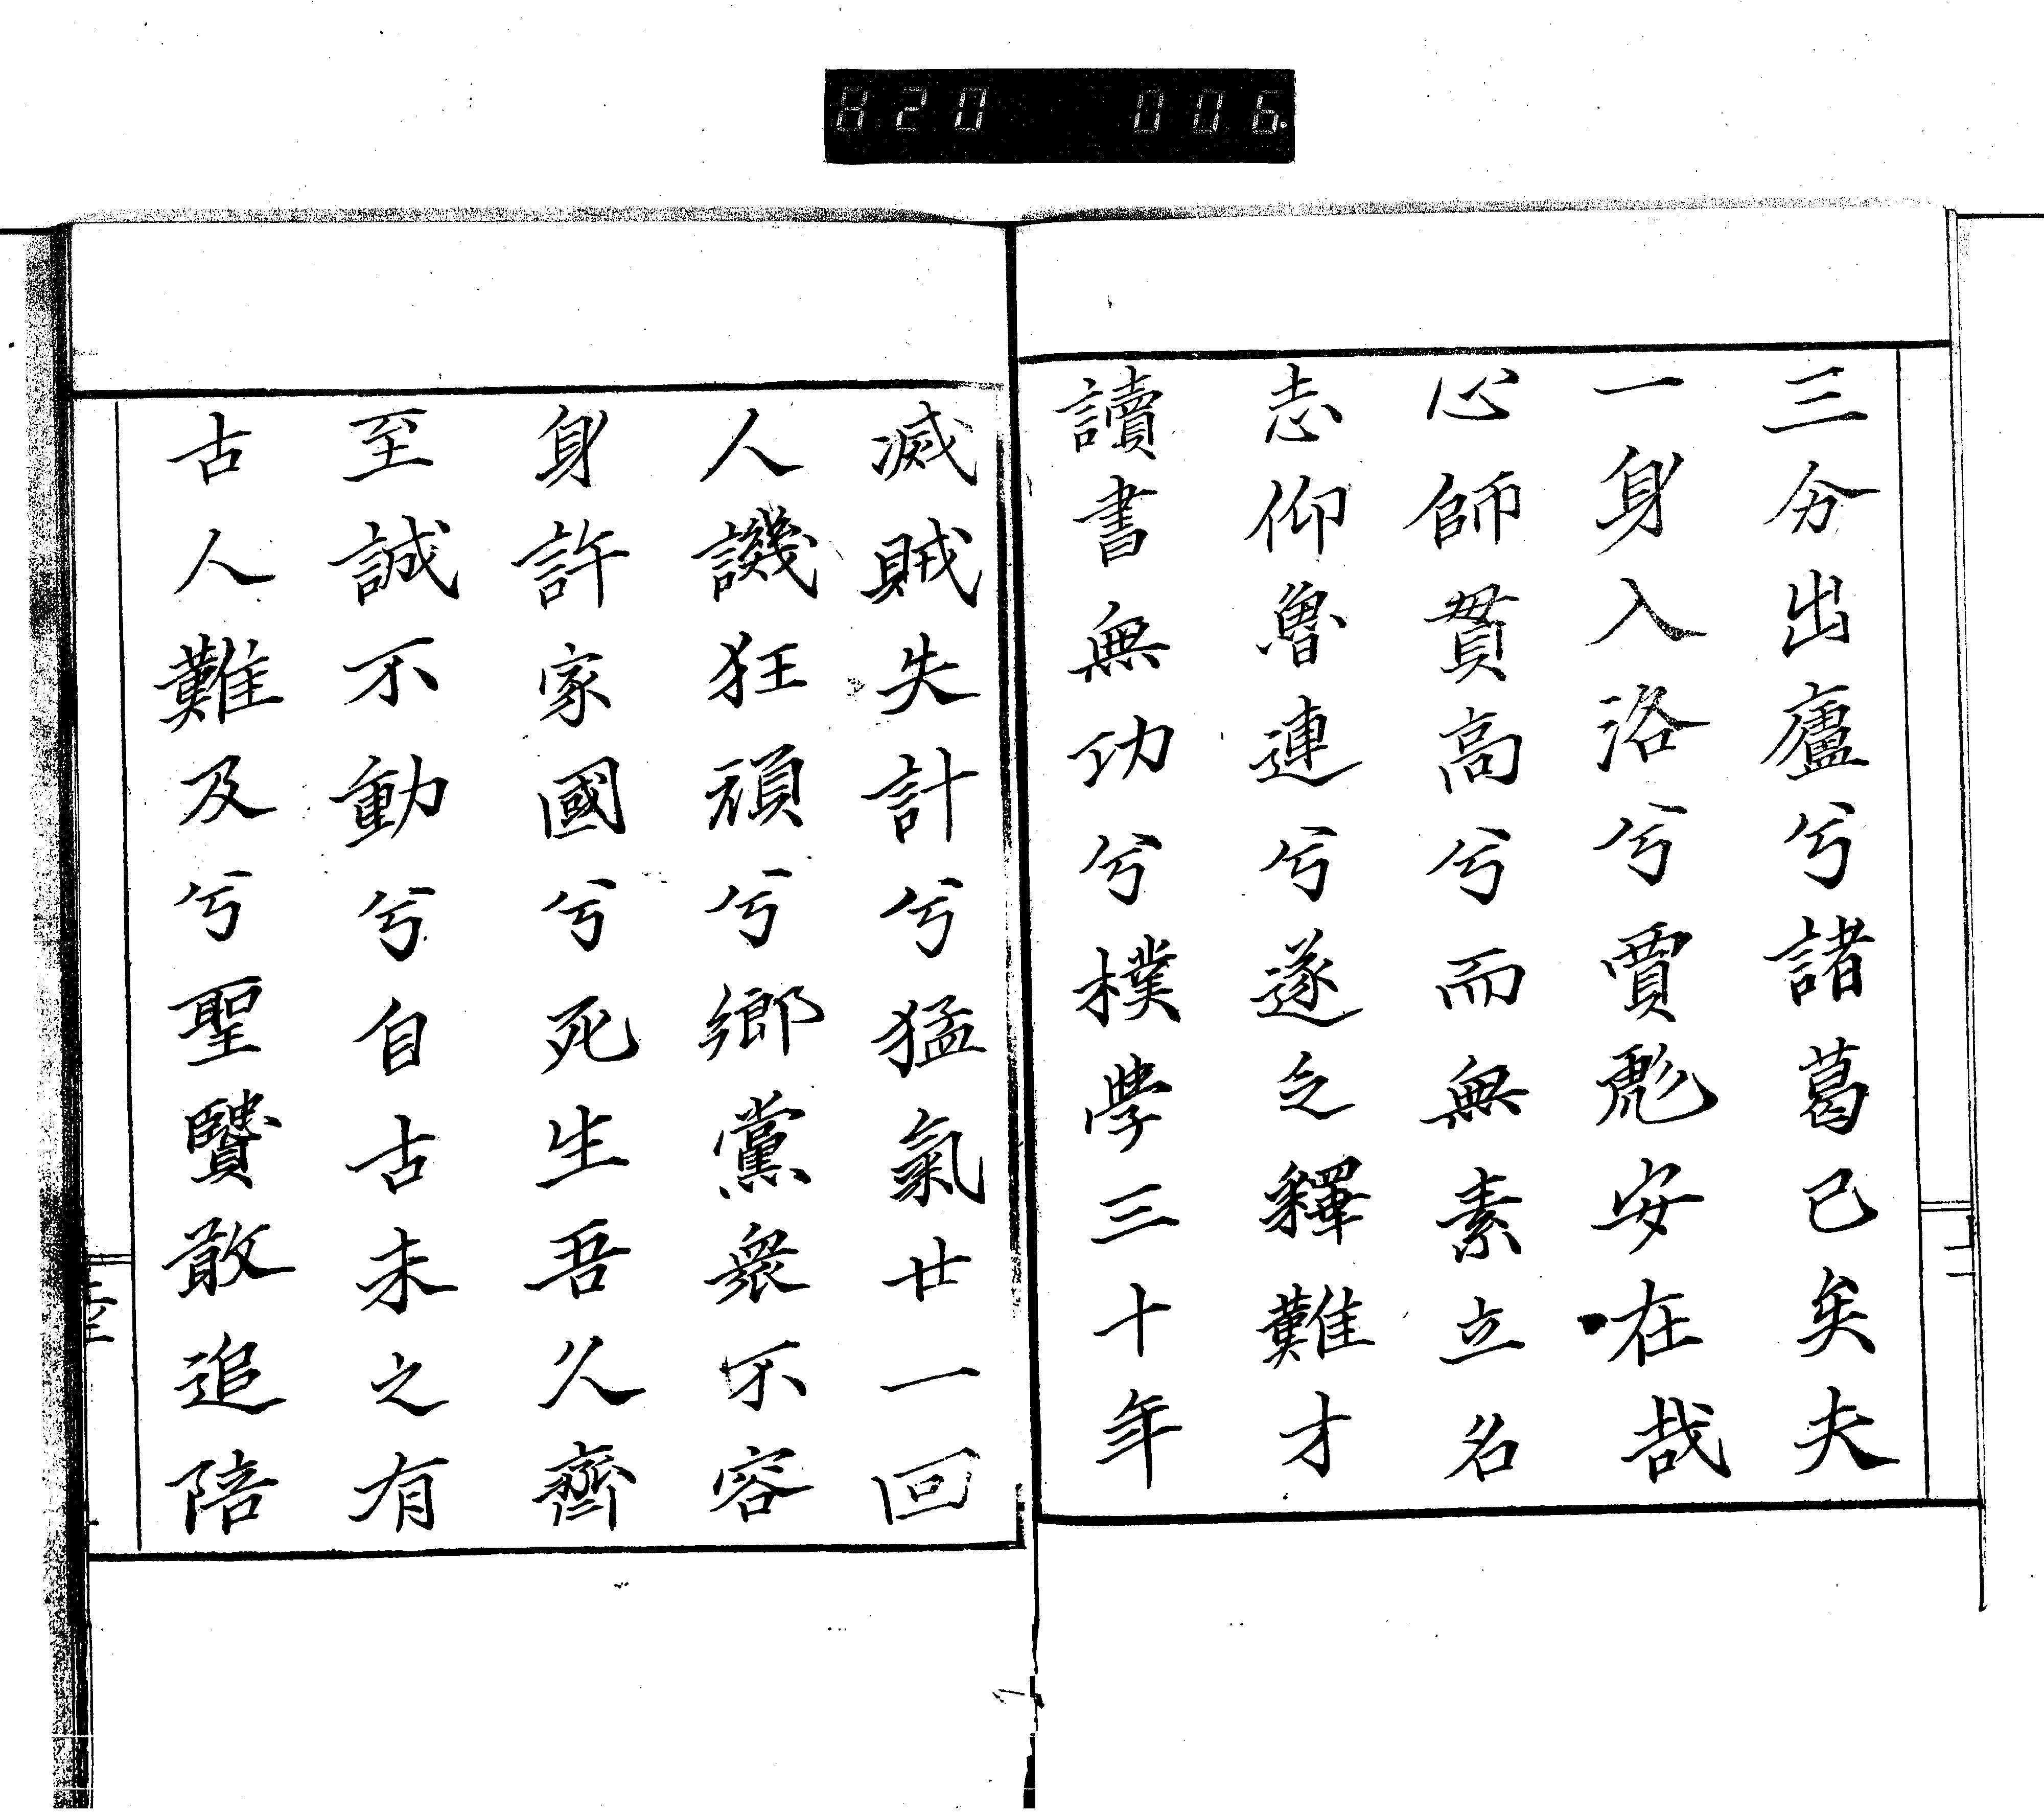 820 006.
三分出廬兮諸葛已矣夫
一身入洛兮賈彪安在哉
心師貫高兮而無素立名
志仰魯連兮遂乏釋難才
讀書無功兮樸學三十年
滅賊失計兮猛氣廿一回
人譏狂頑兮鄉黨衆不容
身許家國兮死生吾久齊
至誠不動兮自古未之有
古人難及兮聖賢敢追陪
二